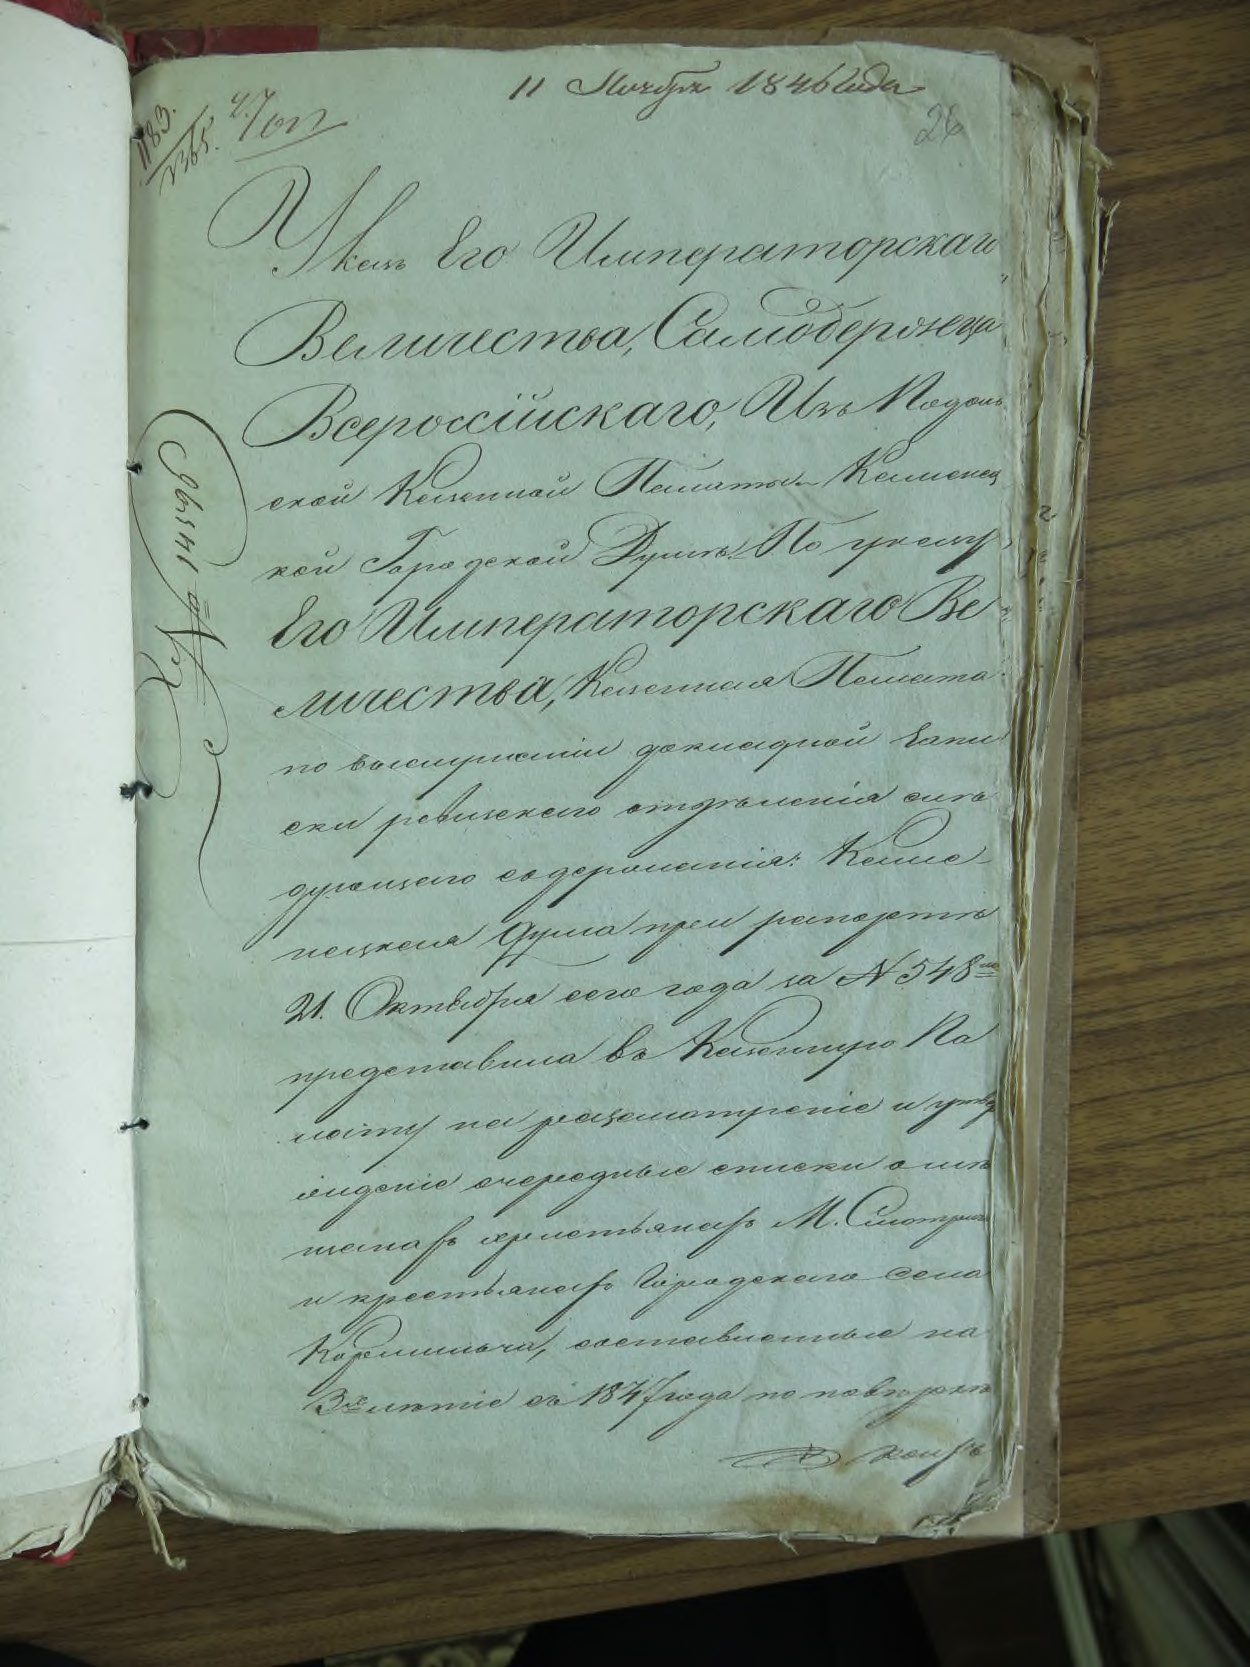 11 Ноября 1846 Года
26
1183.
Указъ Его Императорскаго
Величества, Самодержца
Всероссійскаго, Изъ Подоль
ской Казенной Палаты Каменец
кой Городской Думѣ. По указу
Его Императорскаго Ве
личества, Казенная Палата
по выслушаніи докладной Запи
ски ревизскаго отдѣленія слѣ
дующаго содержанія: Каме
нецкая Дума при рапортѣ
21. Октября сего года за N 548
представила въ Казенную Па
лату на разсмотреніе и утвер
жденіе очередные списки о мѣ
щанахъ христьянахъ М. Смотрича
и крестьянахъ Городскаго Села
Кормильчи, составленные на
3хлѣтіе съ 1847 года по повѣркѣ
коихъ